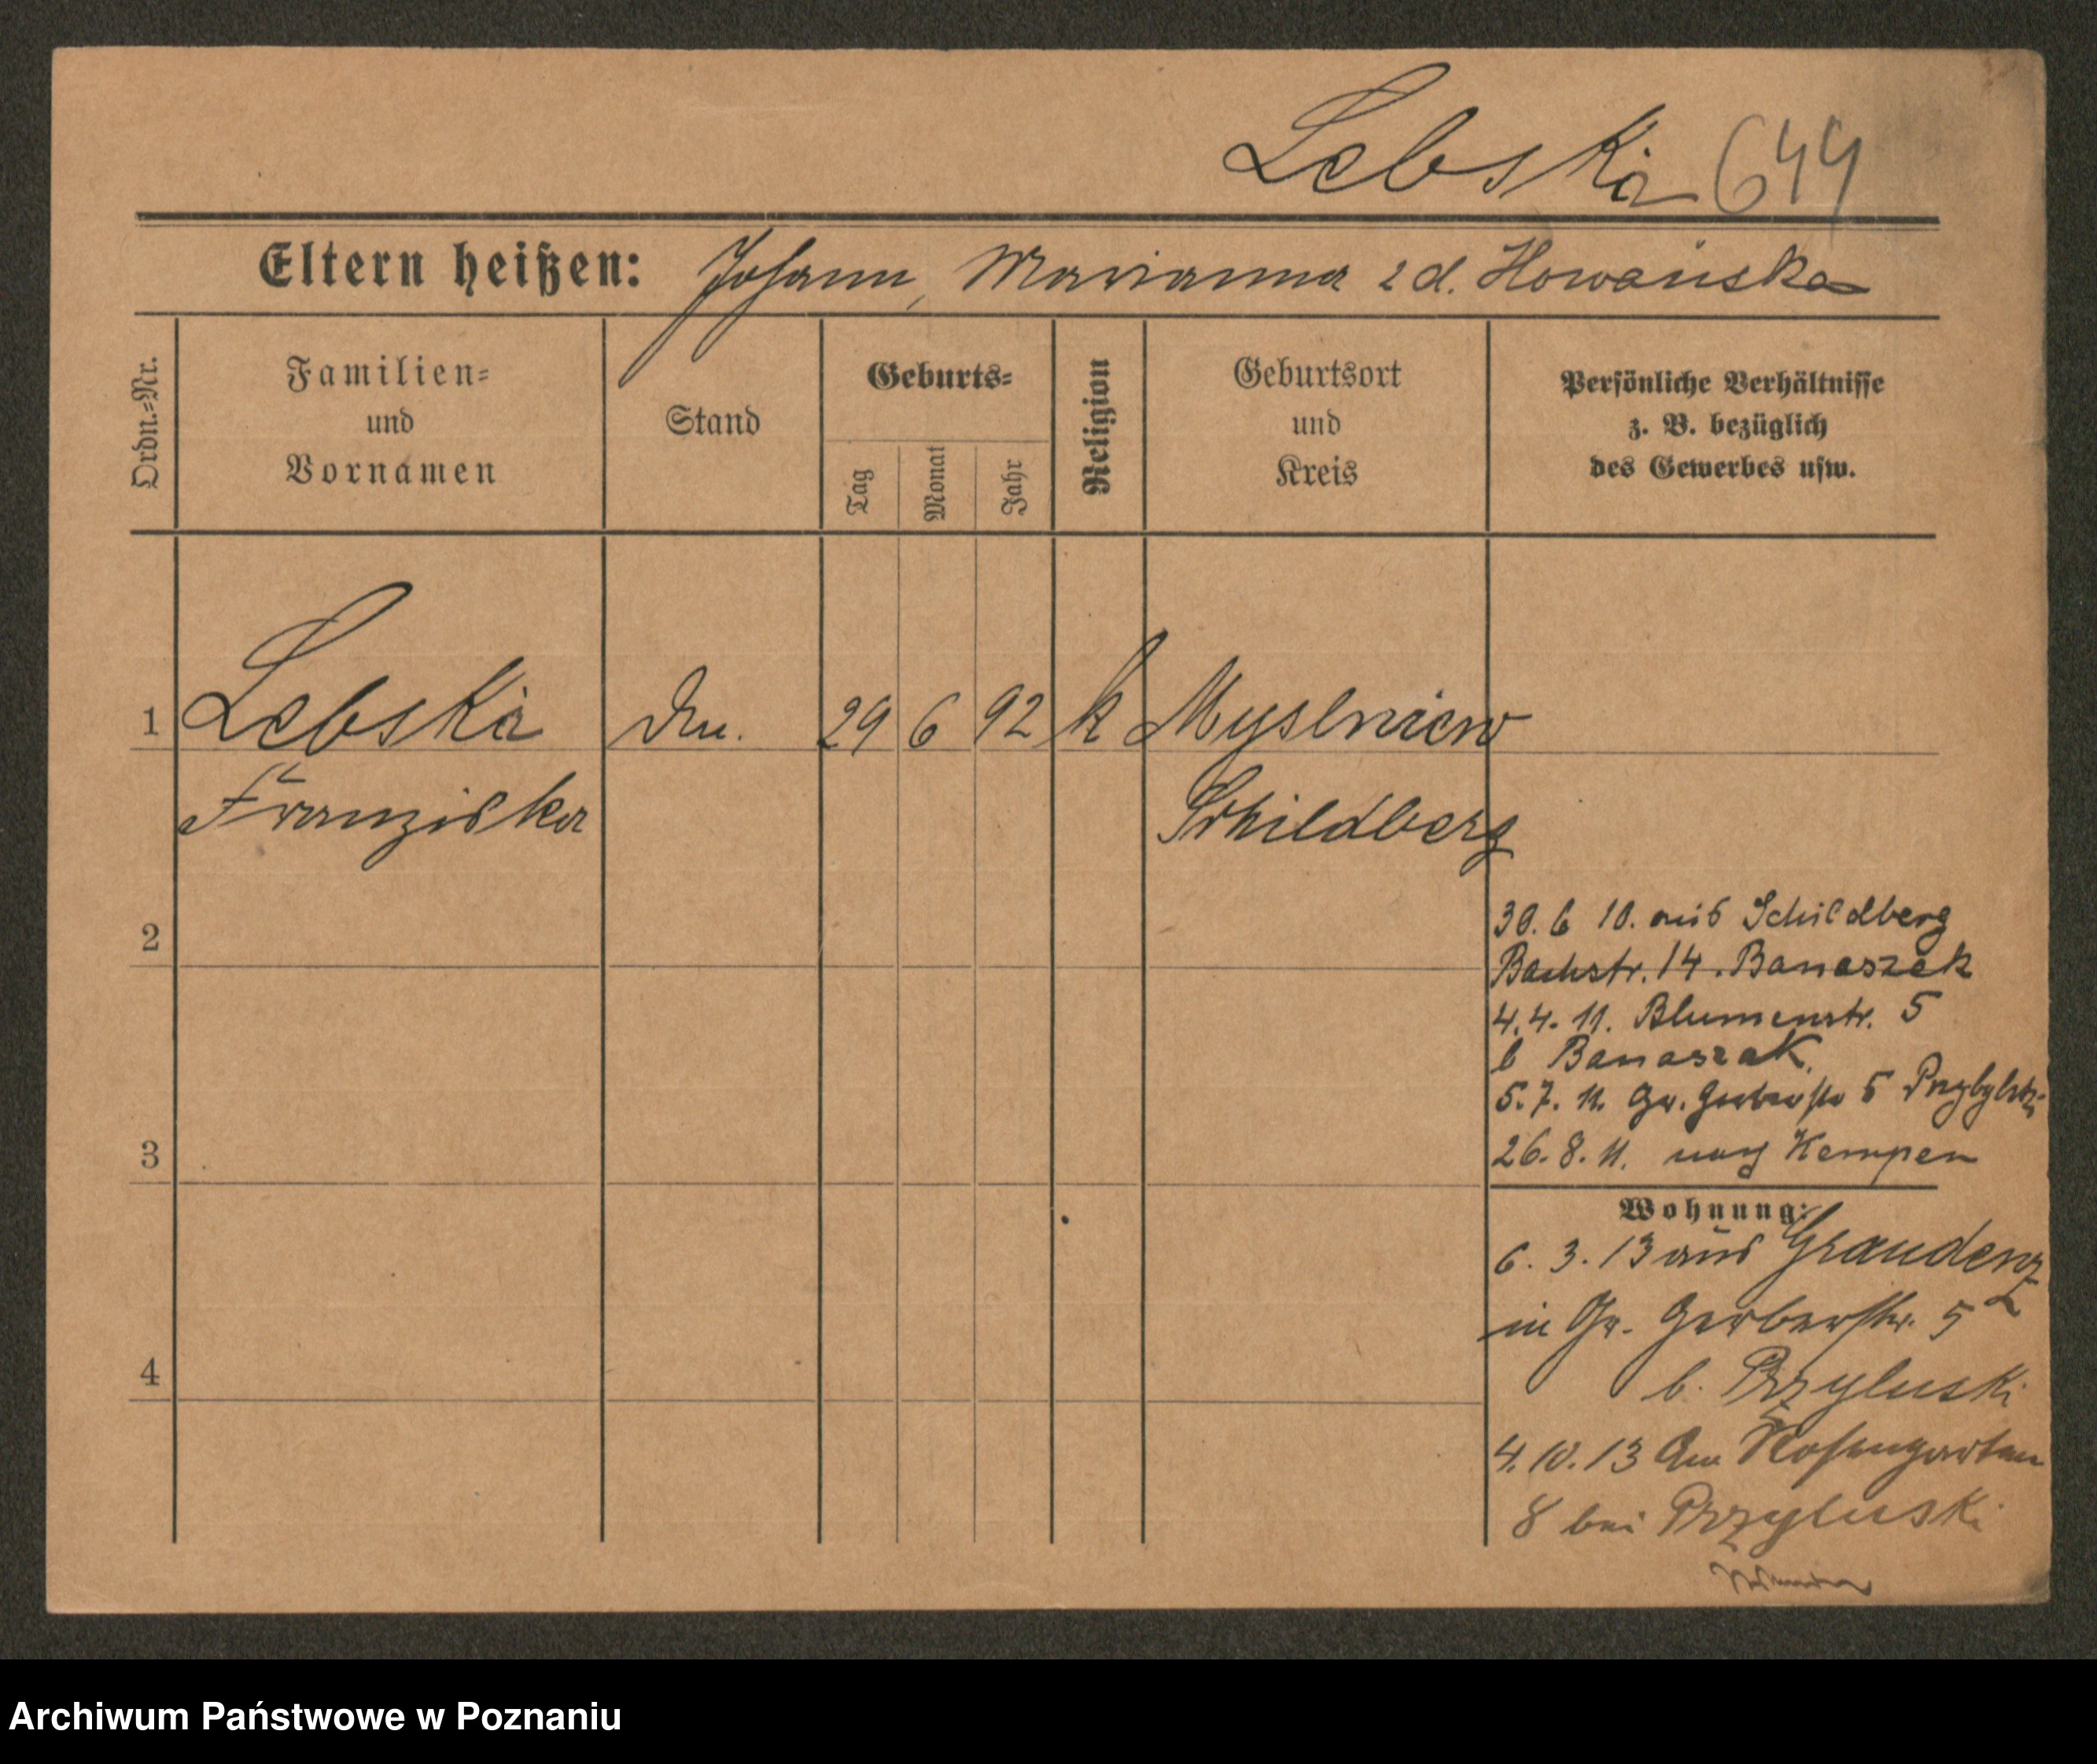 Lebska 644
Eltern heißen: Johann, Marianna z d. Howańska
Ordn.-Nr.
Familien-
und
Vornamen
Stand
Geburts-
Tag
Monat
Jahr
Religion
Geburtsort
und
Kreis
Persönliche Verhältnisse
z. B. bezüglich
des Gewerbes usw.
1 Lebska 29 6 92 k Myslniew
Franziska Schildberg
2
30. 6 10. aus Schildberg
Bachstr. 14. Banaszak
4. 4. 11. Blumenstr. 5
b Banaszak.
5. 7. 11. Gr. Gerberstr 5
3
26. 8. 11. nach Kempen
Wohnung:
6. 3. 13 aus Graudenz
in Gr. Gerberstr. 5
4
b. Przyluski
4. 10. 13 Am Rosengarten
8 bei Przyluski
Archiwum Państwowe w Poznaniu